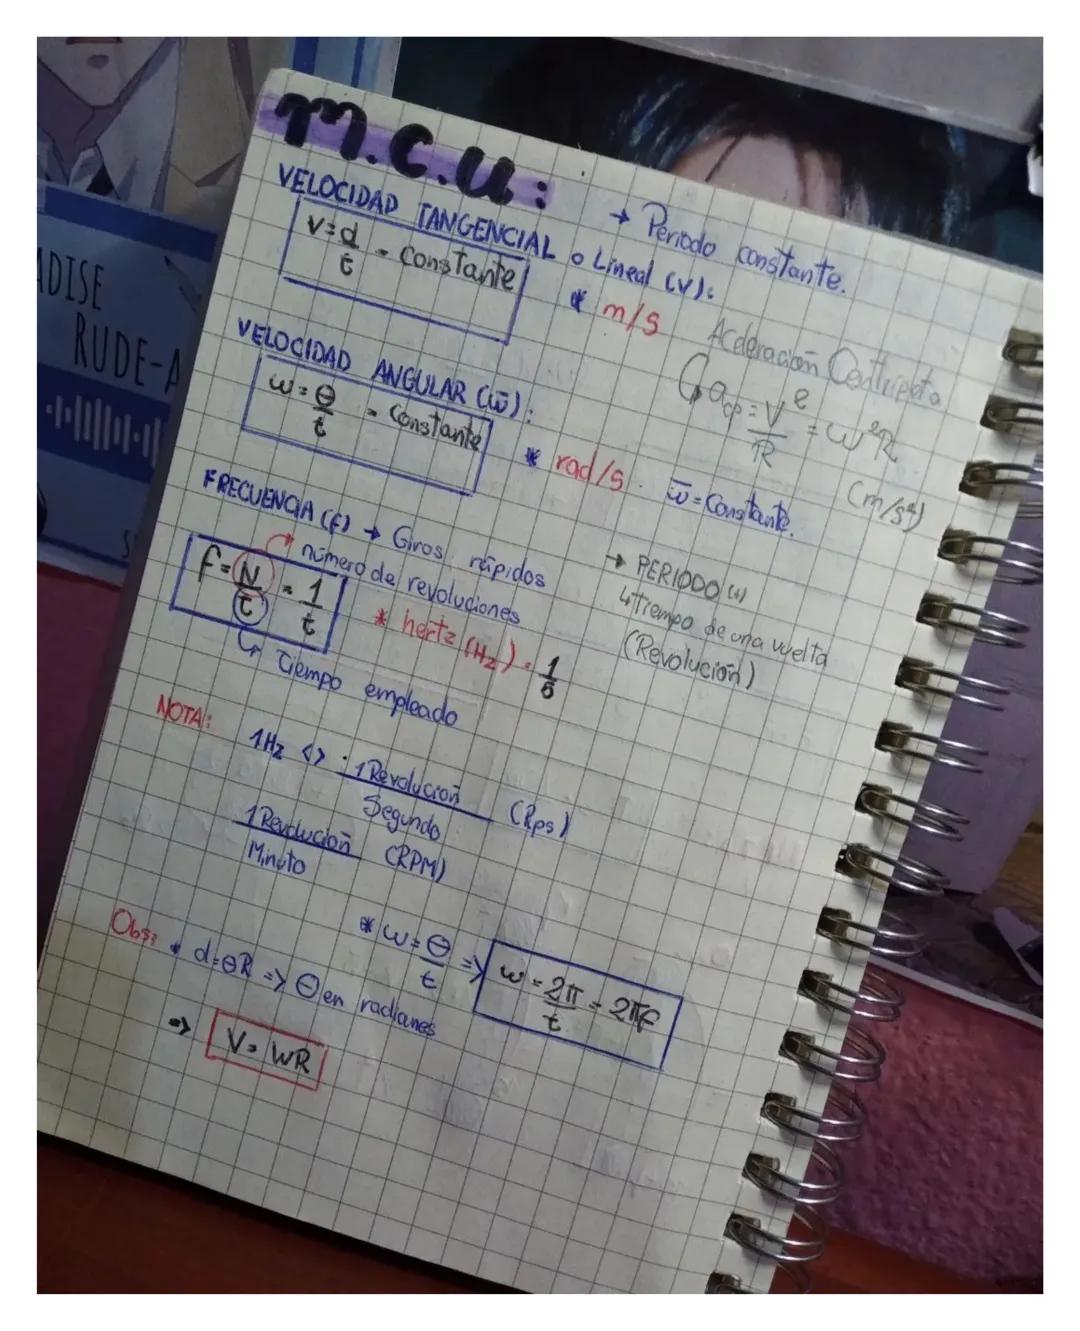 M.C.U:
→ Periodo constante.
VELOCIDAD TANGENCIAL o Lineal (v):
v=d/t = Constante
* m/s
Aceleración Centripeta
acp = v²/R = ω²R
(m/s²)
VELOCIDAD ANGULAR (ω̄):
ω = θ/t = Constante
* rad/s.
ω̄ = Constante.
FRECUENCIA (f) → Giros rápidos
número de revoluciones
f = N/t = 1/t
* hertz (Hz) = 1/s
Tiempo empleado
→ PERIODO (t)
↳ tiempo de una vuelta
(Revolución)
NOTA:
1Hz <> 1 Revolución / Segundo (Rps)
1 Revolución / Minuto (RPM)
Obs: * d=θR => θ en radianes
* ω = θ/t => ω = 2π/t = 2πf
=> V= WR
ADISE
RUDE-A